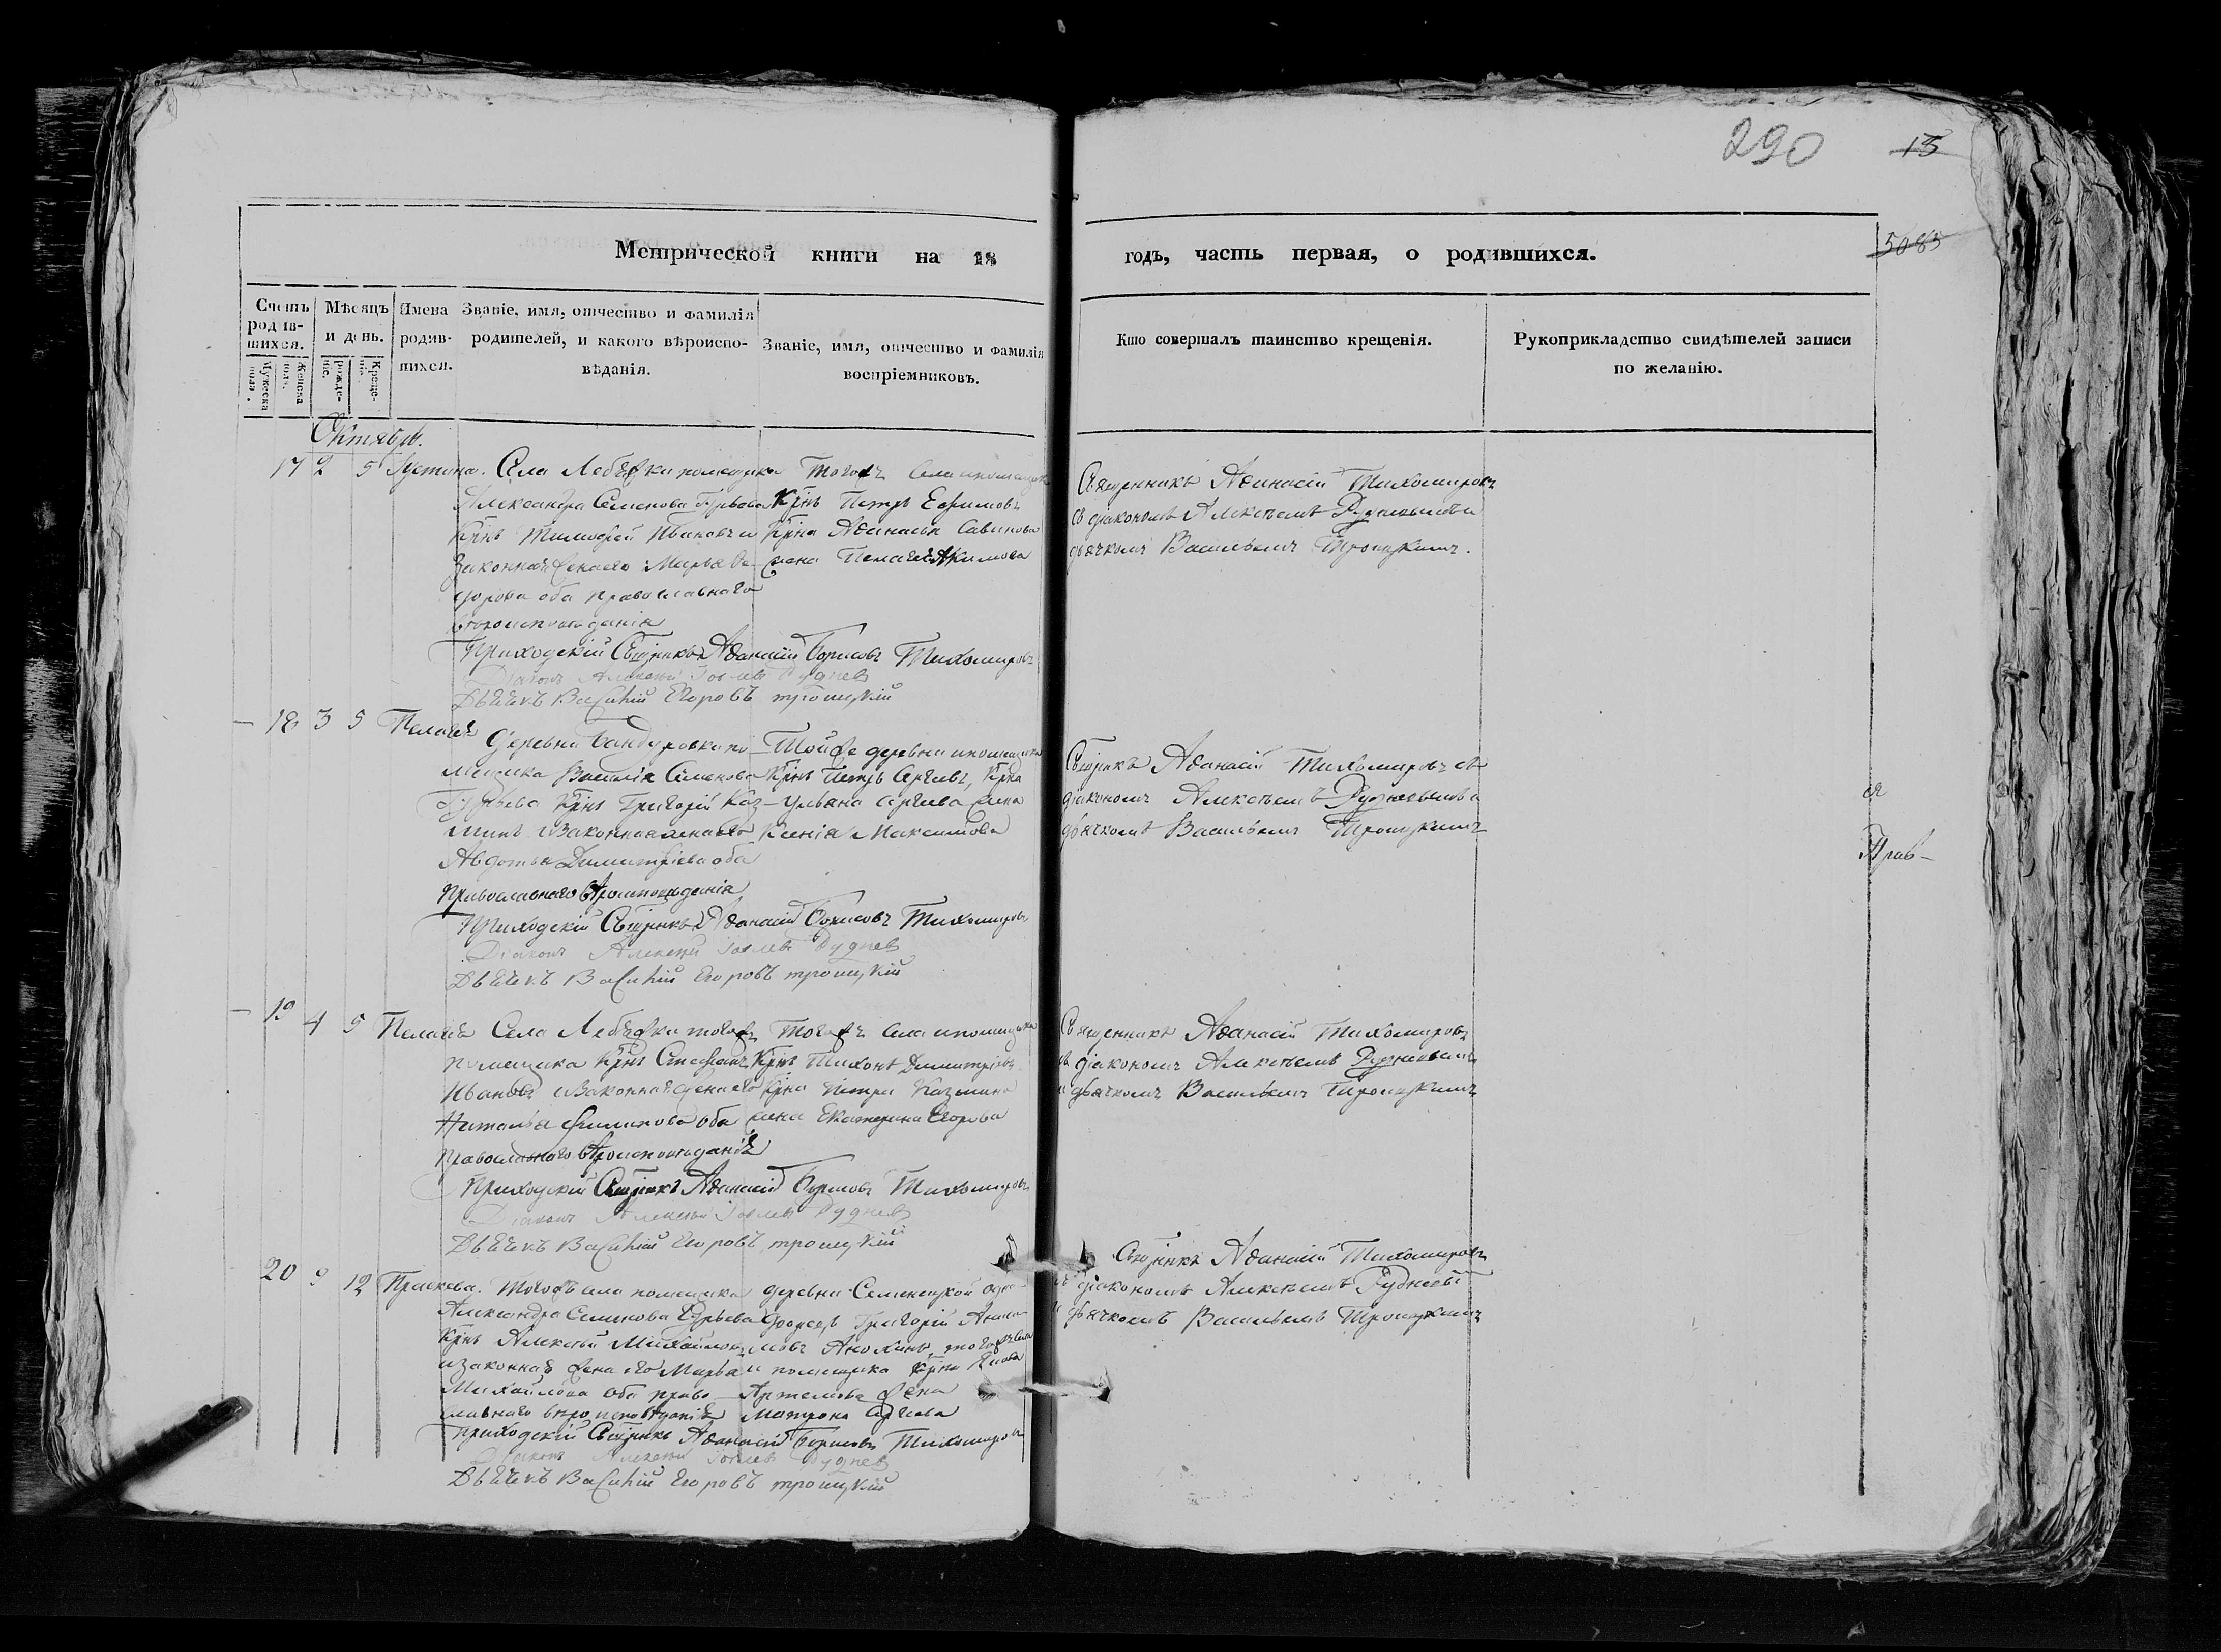 290 13
5085
Метрической книги на 18 годъ, часть первая, о родившихся.
Счетъ родившихся.
Мужеска пола.
Женска пола.
Мѣсяцъ и день.
рожденіе.
Крещеніе.
Имена родившихся.
Званіе, имя, отчество и фамилія родителей, и какого вѣроисповѣданія.
Званіе, имя, отчество и фамилія воспріемниковъ.
Кто совершалъ таинство крещенія.
Рукоприкладство свидѣтелей записи по желанію.
Октябрь.
17 2 5 Устина.
Села Лебяжки помещика
Александра Семенова Гурьева
Крнъ Тимофей Ивановъ и
законная жена его Марья Ѳе-
дорова оба православнаго
вѣроисповеданія
Тогожъ села и помещика
Крнъ Петръ Ефимовъ
Крна Аѳанасья Савинова
жена Пелагея Акимова
Священникъ Аѳанасій Тихомировъ
съ діакономъ Алексѣемъ Рудневымъ и
дьячкомъ Васильемъ Троицкимъ.
Приходскій Сщнникъ Аѳанасій Борисовъ Тихомировъ
Діаконъ Алексей Іовлевъ Рудневъ
Дьячекъ Василій Егоровъ троицкій
18 3 5 Пелагея
Деревни Бандуровки по-
мещика Василія Семенова
Гурьева Крнъ Григорій Каз-
минъ и законная жена его
Авдотья Димитріева оба
православнаго вѣроисповеданія
Той же деревни и помещика
Крнъ Петръ Сергеевъ, Крна
Ульяна Сергеева жена
Ксенія Максимова
Сщнникъ Аѳанасій Тихомировъ съ
діакономъ Алексѣемъ Рудневымъ и
дьячкомъ Васильемъ Троицкимъ
я
Прав-
Приходскій Сщнникъ Аѳанасій Борисовъ Тихомировъ
Діаконъ Алексей Іовлевъ Рудневъ
Дьячекъ Василій Егоровъ троицкій
19 4 5 Пелагея
Села Лебяжки тогожъ
помещика Крнъ Стефанъ
Ивановъ и законная жена его
Наталья Филипова оба
православнаго вѣроисповеданія
Тогожъ села и помещика
Крнъ Тихонъ Димитріевъ
Крна Петра Казмина
жена Екатерина Егорова
Священникъ Аѳанасій Тихомировъ
съ діакономъ Алексѣемъ Рудневымъ
и дьячкомъ Васильемъ Троицкимъ
Приходскій Сщнникъ Аѳанасій Борисовъ Тихомировъ
Діаконъ Алексей Іовлевъ Рудневъ
Дьячекъ Василій Егоровъ троицкій
20 9 12 Праскева.
Тогожъ села помещика
Александра Семенова Гурьева
Крнъ Алексѣй Михайловъ
и законная жена его Марья
Михайлова оба право-
славнаго вѣроисповеданія
деревни Семеницкой одно-
дворецъ Григорій
Анохинъ, тогожъ села
и помещика Крна
Артемова жена
Матрона Сергеева
Сщнникъ Аѳанасій Тихомировъ
съ діакономъ Алексѣемъ Рудневы
и дьячкомъ Васильемъ Троицкимъ
Приходскій Сщнникъ Аѳанасій Борисовъ Тихомировъ
Діаконъ Алексей Іовлевъ Рудневъ
Дьячекъ Василій Егоровъ троицкій